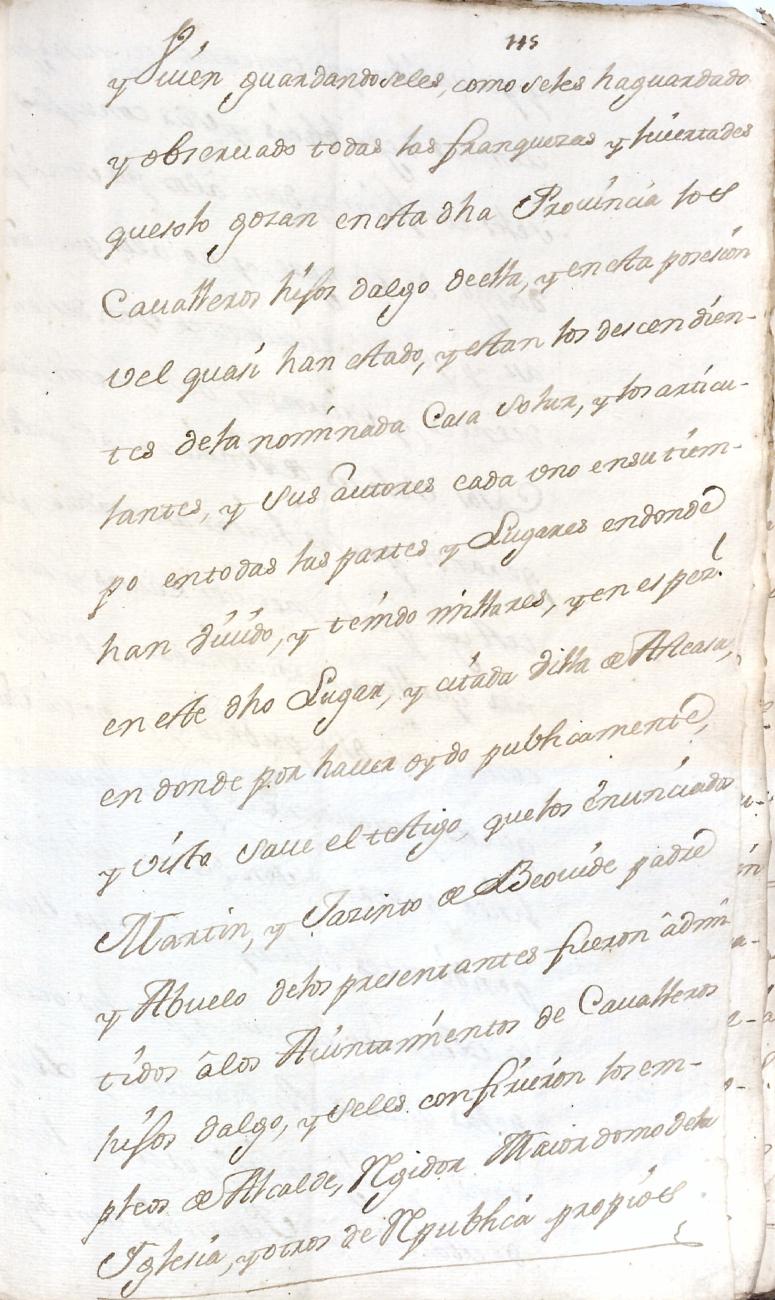 115
y viuen guardandoseles, como seles haguardado
y obseruado todas las franquezas y liuertades
quesolo gozan enesta dha Prouincia los
Caualleros hijos dalgo deella, y enesta posesion
vel quasi han estado, y estan los descendien-
tes dela nominada Casa Solar, y los articu-
lantes, y sus autores cada vno ensu tiem-
po entodas las partes y Lugares endonde
han viuido, y tenido millares, y en espezl
en este dho Lugar, y citada villa de Alcasa,
en donde por hauer oydo publicamente,
y visto saue eltestigo, quelos enunciados
Martin, y Jazinto de Beouide padre
y Abuelo delos presentantes fueron admi
tidos âlos Aiuntamientos de Caualleros
hijos dalgo, y seles confirieron los em-
pleos de Alcalde, Rejidor Maiordomo dela
Iglesia, y otros de Republica propios